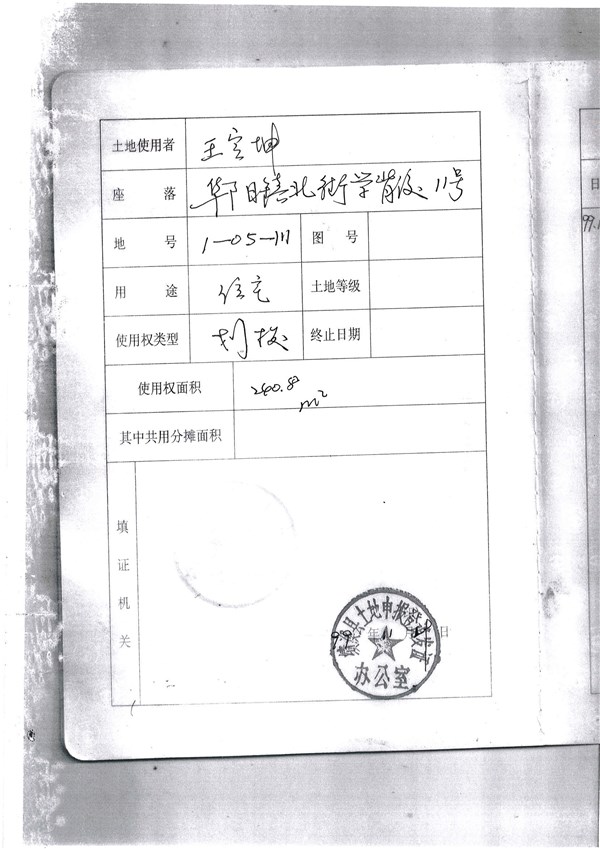 土地使用者 王宝坤
座落 华阳镇北街学背后11号
地号 1-05-111 图号
用途 住宅 土地等级
使用权类型 划拨 终止日期
使用权面积 240.8 m²
其中共用分摊面积
填证机关
年 11 月 日
县土地申报登记发证
办公室
日
99.1